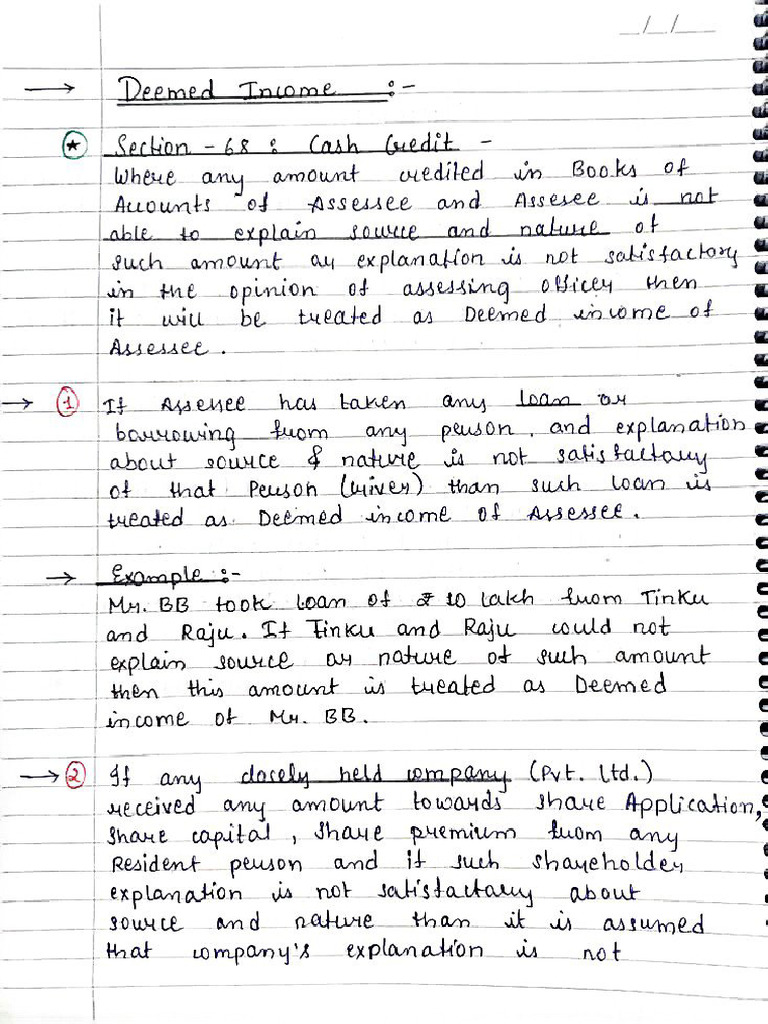 _/_/_
→ Deemed Income :-
★ Section - 68 : Cash Credit -
Where any amount credited in Books of
Accounts of Assessee and Assesee is not
able to explain source and nature of
such amount or explanation is not satisfactory
in the opinion of assessing officer then
it will be treated as Deemed income of
Assessee.
→ 1 If Assessee has taken any loan or
borrowing from any person, and explanation
about source & nature is not satisfactary
of that Person (Giver) than such loan is
treated as Deemed income of Assessee.
→ Example :-
Mr. BB took loan of ₹ 10 lakh from Tinku
and Raju. If Tinku and Raju could not
explain source or nature of such amount
then this amount is treated as Deemed
income of Mr. BB.
→ 2 If any closely held company (Pvt. Ltd.)
received any amount towards share Application,
share capital, share premium from any
Resident person and if such shareholder
explanation is not satisfactary about
source and nature than it is assumed
that company's explanation is not